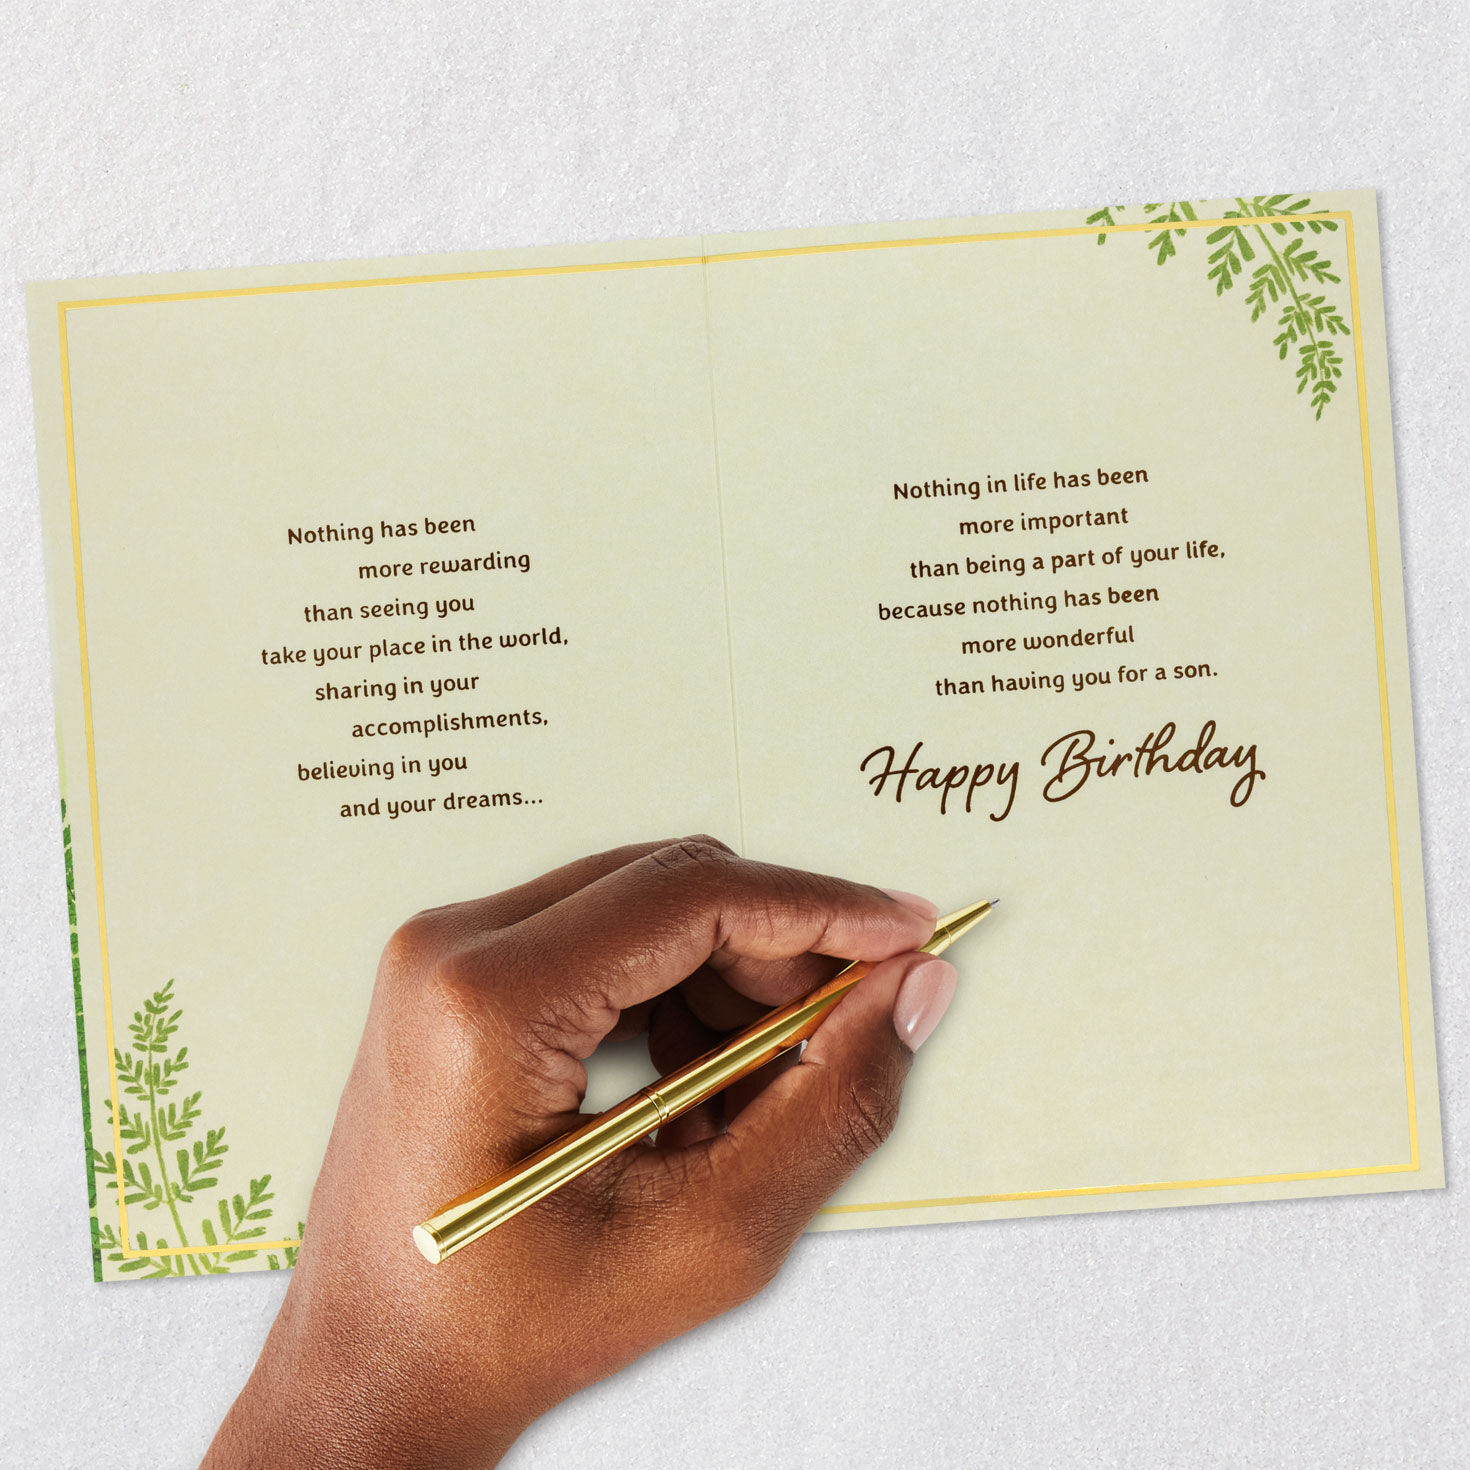 Nothing has been
more rewarding
than seeing you
take your place in the world,
sharing in your
accomplishments,
believing in you
and your dreams...
Nothing in life has been
more important
than being a part of your life,
because nothing has been
more wonderful
than having you for a son.
Happy Birthday